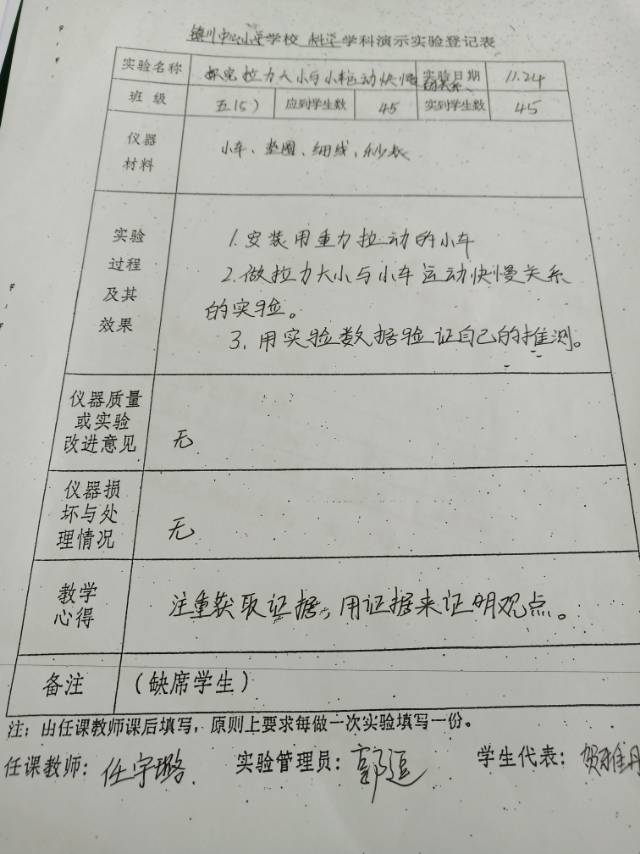 镇川中心小学学校 科学学科演示实验登记表
实验名称 探究拉力大小与小车运动快慢的关系、 实验日期 11.24
班 级 五(5) 应到学生数 45 实到学生数 45
仪器
材料
小车、垫圈、细线、秒表
实验
过程
及其
效果
1.安装用重力拉动的小车
2.做拉力大小与小车运动快慢关系
的实验。
3.用实验数据验证自己的推测。
仪器质量
或实验
改进意见
无
仪器损
坏与处
理情况
无
教学
心得
注重获取证据,用证据来证明观点。
备注 (缺席学生)
注:由任课教师课后填写,原则上要求每做一次实验填写一份。
任课教师:任宇璐 实验管理员:郭 学生代表:贺雅丹